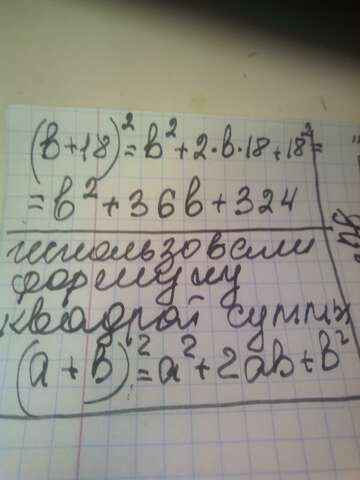 (b+18)²=b²+2·b·18+18²=
=b²+36b+324
использовали
формулу
квадрат суммы
(a+b)²=a²+2ab+b²